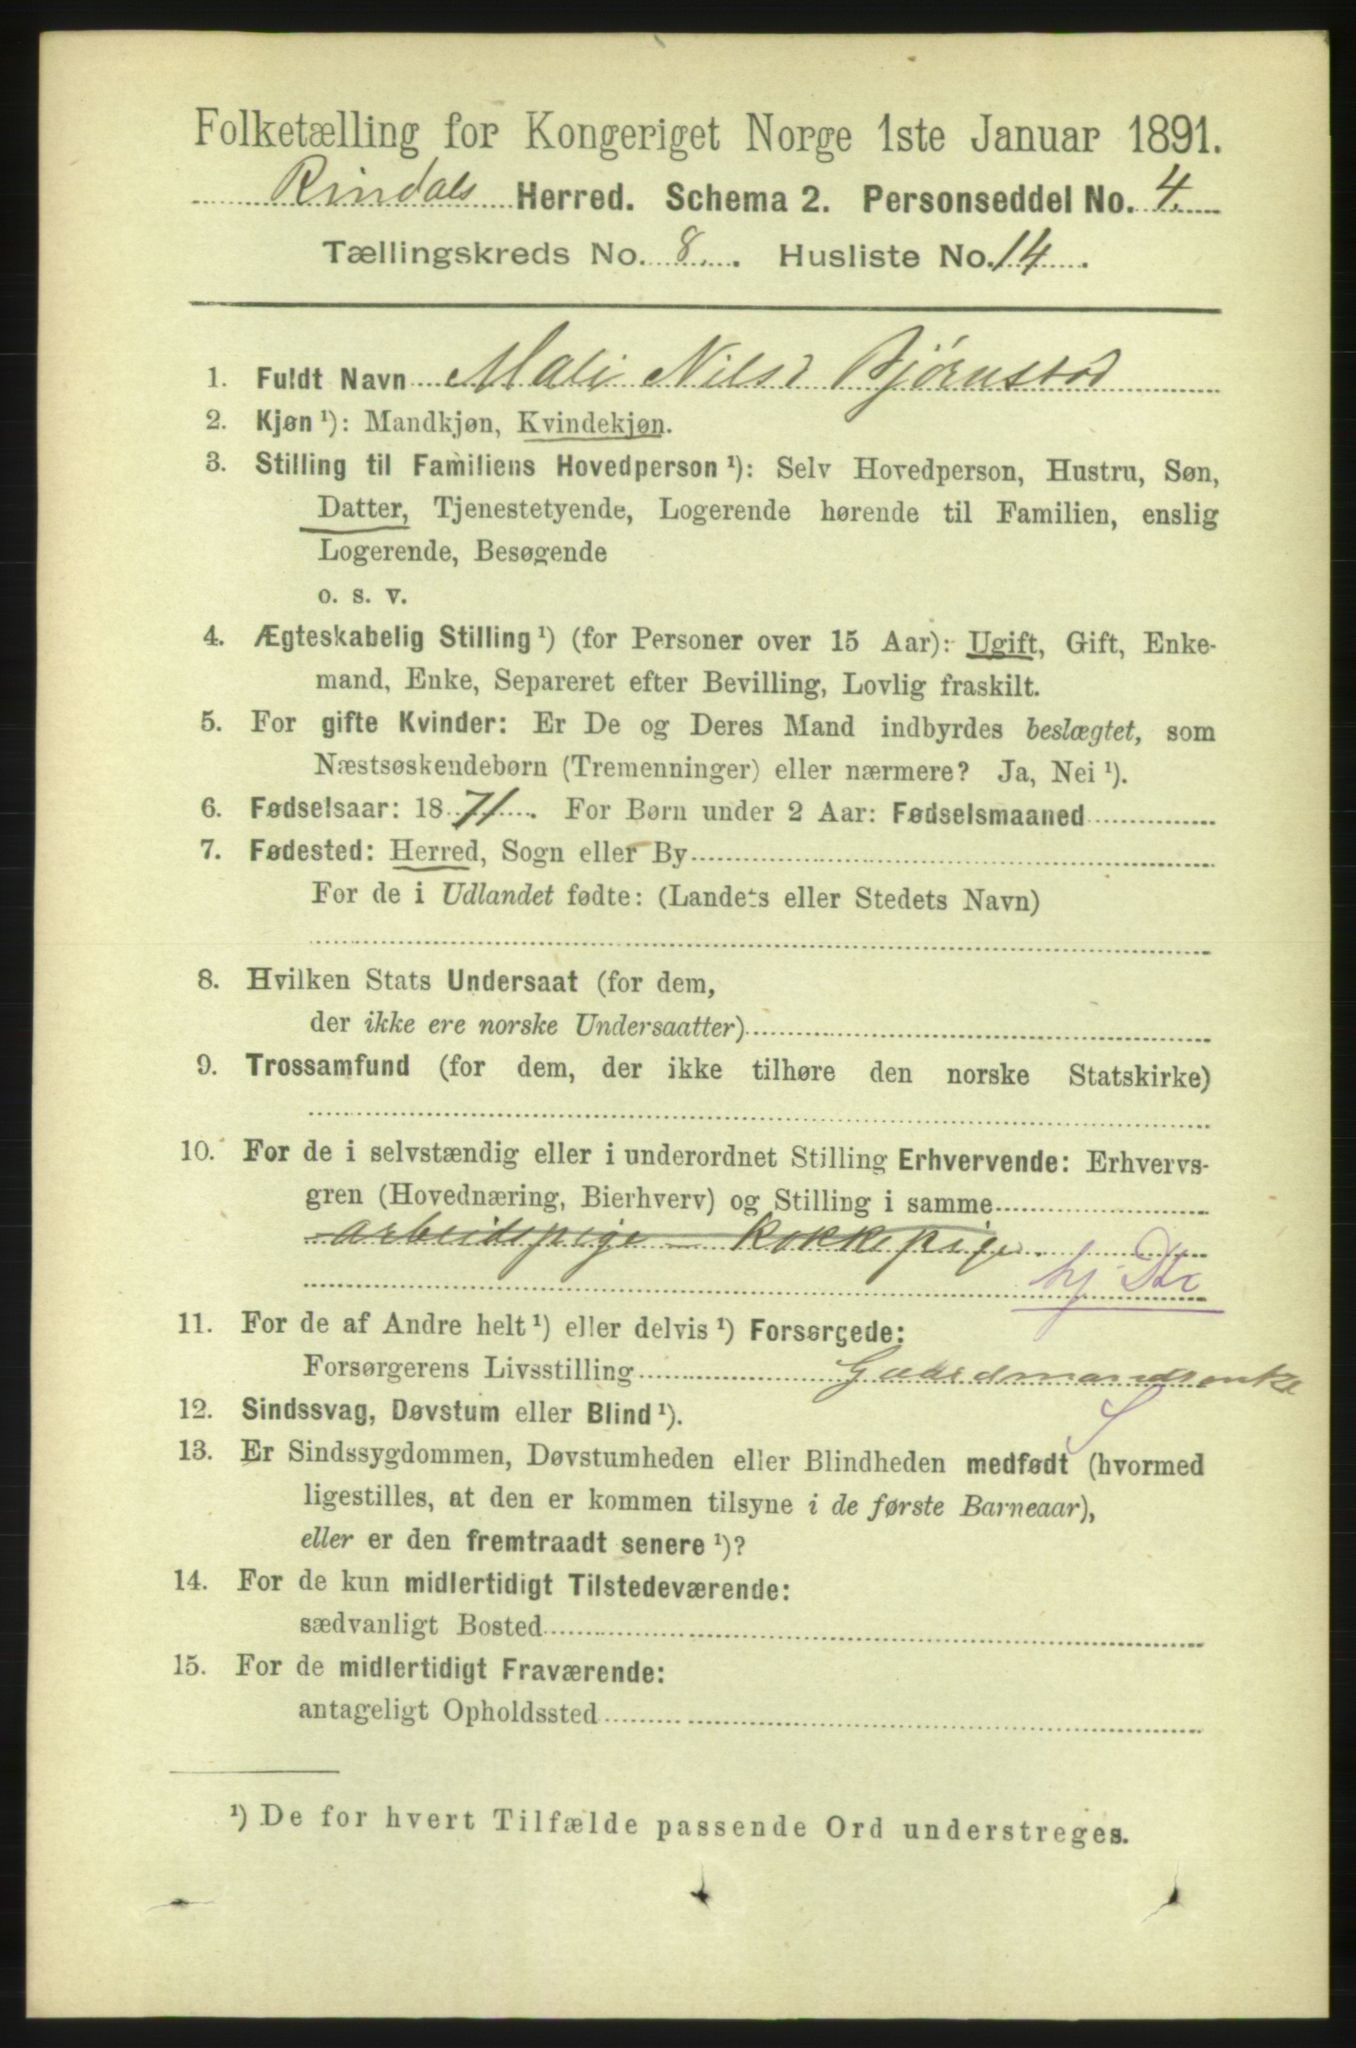 Folketælling for Kongeriget Norge 1ste Januar 1891.
Rindals Herred. Schema 2. Personseddel No. 4.
Tællingskreds No. 8. Husliste No. 14.
1. Fuldt Navn Mali Nilsd Bjørnstad
2. Kjøn ¹): Mandkjøn, Kvindekjøn.
3. Stilling til Familiens Hovedperson ¹): Selv Hovedperson, Hustru, Søn,
Datter, Tjenestetyende, Logerende hørende til Familien, enslig
Logerende, Besøgende
o. s. v.
4. Ægteskabelig Stilling ¹) (for Personer over 15 Aar): Ugift, Gift, Enke-
mand, Enke, Separeret efter Bevilling, Lovlig fraskilt.
5. For gifte Kvinder: Er De og Deres Mand indbyrdes beslægtet, som
Næstsøskendebørn (Tremenninger) eller nærmere? Ja, Nei ¹).
6. Fødselsaar: 1871. For Børn under 2 Aar: Fødselsmaaned
7. Fødested: Herred, Sogn eller By
For de i Udlandet fødte: (Landets eller Stedets Navn)
8. Hvilken Stats Undersaat (for dem,
der ikke ere norske Undersaatter)
9. Trossamfund (for dem, der ikke tilhøre den norske Statskirke)
10. For de i selvstændig eller i underordnet Stilling Erhvervende: Erhvervs-
gren (Hovednæring, Bierhverv) og Stilling i samme
arbeidspige – Kokkepige.
hj. Dtr
11. For de af Andre helt ¹) eller delvis ¹) Forsørgede:
Forsørgerens Livsstilling Gaardmandsenke
S
12. Sindssvag, Døvstum eller Blind ¹).
13. Er Sindssygdommen, Døvstumheden eller Blindheden medfødt (hvormed
ligestilles, at den er kommen tilsyne i de første Barneaar),
eller er den fremtraadt senere ¹)?
14. For de kun midlertidigt Tilstedeværende:
sædvanligt Bosted
15. For de midlertidigt Fraværende:
antageligt Opholdssted
¹) De for hvert Tilfælde passende Ord understreges.